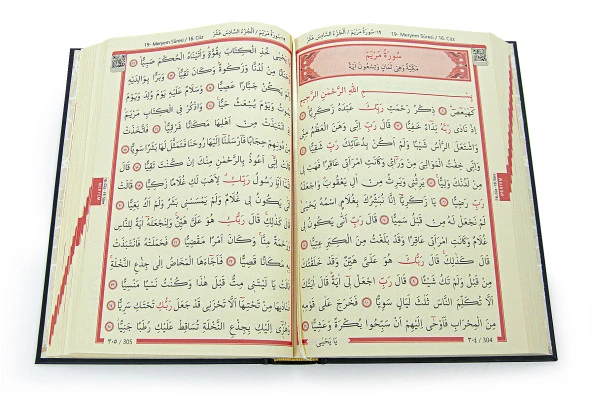 19- Meryem Sûresi / 16. Cüz
سُورَةُ مَرْيَمَ
مَكِّيَّةٌ وَهِيَ ثَمَانٍ وَتِسْعُونَ اٰيَةً
اللّٰهِ الرَّحْمٰنِ الرَّحِيمِ
كٓهٰيٰعٓصٓ ۝ ذِكْرُ رَحْمَتِ رَبِّكَ عَبْدَهُ زَكَرِيَّا ۝
اِذْ نَادٰى رَبَّهُ نِدَٓاءً خَفِيًّا ۝ قَالَ رَبِّ اِنّٖي وَهَنَ الْعَظْمُ مِنّٖي
وَاشْتَعَلَ الرَّأْسُ شَيْبًا وَلَمْ اَكُنْ بِدُعَٓائِكَ رَبِّ شَقِيًّا ۝
وَاِنّٖي خِفْتُ الْمَوَالِيَ مِنْ وَرَٓاءٖي وَكَانَتِ امْرَاَتٖي عَاقِرًا فَهَبْ لٖي
مِنْ لَدُنْكَ وَلِيًّا ۝ يَرِثُنٖي وَيَرِثُ مِنْ اٰلِ يَعْقُوبَ وَاجْعَلْهُ
رَبِّ رَضِيًّا ۝ يَا زَكَرِيَّٓا اِنَّا نُبَشِّرُكَ بِغُلَامٍ اسْمُهُ يَحْيٰى
لَمْ نَجْعَلْ لَهُ مِنْ قَبْلُ سَمِيًّا ۝ قَالَ رَبِّ اَنّٰى يَكُونُ لٖي
غُلَامٌ وَكَانَتِ امْرَاَتٖي عَاقِرًا وَقَدْ بَلَغْتُ مِنَ الْكِبَرِ عِتِيًّا ۝
قَالَ كَذٰلِكَ قَالَ رَبُّكَ هُوَ عَلَيَّ هَيِّنٌ وَقَدْ خَلَقْتُكَ
مِنْ قَبْلُ وَلَمْ تَكُ شَيْـًٔا ۝ قَالَ رَبِّ اجْعَلْ لٖٓي اٰيَةً قَالَ اٰيَتُكَ
اَلَّا تُكَلِّمَ النَّاسَ ثَلٰثَ لَيَالٍ سَوِيًّا ۝ فَخَرَجَ عَلٰى قَوْمِهٖ
مِنَ الْمِحْرَابِ فَاَوْحٰٓى اِلَيْهِمْ اَنْ سَبِّحُوا بُكْرَةً وَعَشِيًّا ۝
يَا يَحْيٰى
٣٠٤ / 304
19- Meryem Sûresi / 16. Cüz
١٩-سُورَةُ مَرْيَمَ / اَلْجُزْءُ السَّادِسَ عَشَرَ
يَحْيٰى خُذِ الْكِتَابَ بِقُوَّةٍ وَاٰتَيْنَاهُ الْحُكْمَ صَبِيًّا ۝
مِنْ لَدُنَّا وَزَكٰوةً وَكَانَ تَقِيًّا ۝ وَبَرًّا بِوَالِدَيْهِ
يَكُنْ جَبَّارًا عَصِيًّا ۝ وَسَلَامٌ عَلَيْهِ يَوْمَ وُلِدَ وَيَوْمَ
وَيَوْمَ يُبْعَثُ حَيًّا ۝ وَاذْكُرْ فِي الْكِتَابِ مَرْيَمَ
مِنْ اَهْلِهَا مَكَانًا شَرْقِيًّا ۝ فَاتَّخَذَتْ
دُونِهِمْ حِجَابًا فَاَرْسَلْنَٓا اِلَيْهَا رُوحَنَا فَتَمَثَّلَ لَهَا بَشَرًا سَوِيًّا ۝
اِنّٖٓي اَعُوذُ بِالرَّحْمٰنِ مِنْكَ اِنْ كُنْتَ تَقِيًّا ۝ قَالَ
اَنَا۬ رَسُولُ رَبِّكِ لِاَهَبَ لَكِ غُلَامًا زَكِيًّا ۝ قَالَتْ
يَكُونُ لٖي غُلَامٌ وَلَمْ يَمْسَسْنٖي بَشَرٌ وَلَمْ اَكُ بَغِيًّا ۝
كَذٰلِكِ قَالَ رَبُّكِ هُوَ عَلَيَّ هَيِّنٌ وَلِنَجْعَلَهُٓ اٰيَةً لِلنَّاسِ
مِنَّا وَكَانَ اَمْرًا مَقْضِيًّا ۝ فَحَمَلَتْهُ فَانْتَبَذَتْ
مَكَانًا قَصِيًّا ۝ فَاَجَٓاءَهَا الْمَخَاضُ اِلٰى جِذْعِ النَّخْلَةِ
يَا لَيْتَنٖي مِتُّ قَبْلَ هٰذَا وَكُنْتُ نَسْيًا مَنْسِيًّا ۝
مِنْ تَحْتِهَٓا اَلَّا تَحْزَنٖي قَدْ جَعَلَ رَبُّكِ تَحْتَكِ سَرِيًّا ۝
اِلَيْكِ بِجِذْعِ النَّخْلَةِ تُسَاقِطْ عَلَيْكِ رُطَبًا جَنِيًّا ۝
٣٠٥ / 305